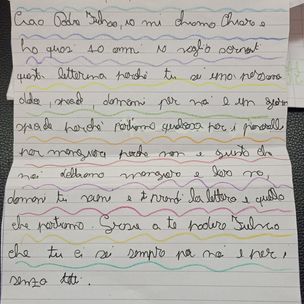 Ciao Padre Tulneo, io mi chiamo Chiara e
ho quasi 10 anni io voglio scriverti
questa letterina perché tu sei una persona
dolce, speciale, domani per noi è un giorno
speciale perché portiamo qualcosa per i poverelli
per mangiare perche non e giusto che
noi dobbiamo mangiare e loro no,
domani tu vieni e ti prendi la lettera e quello
che portiamo. Grazie a te padre
che tu ci sei sempre per noi e per i
senza tetti.